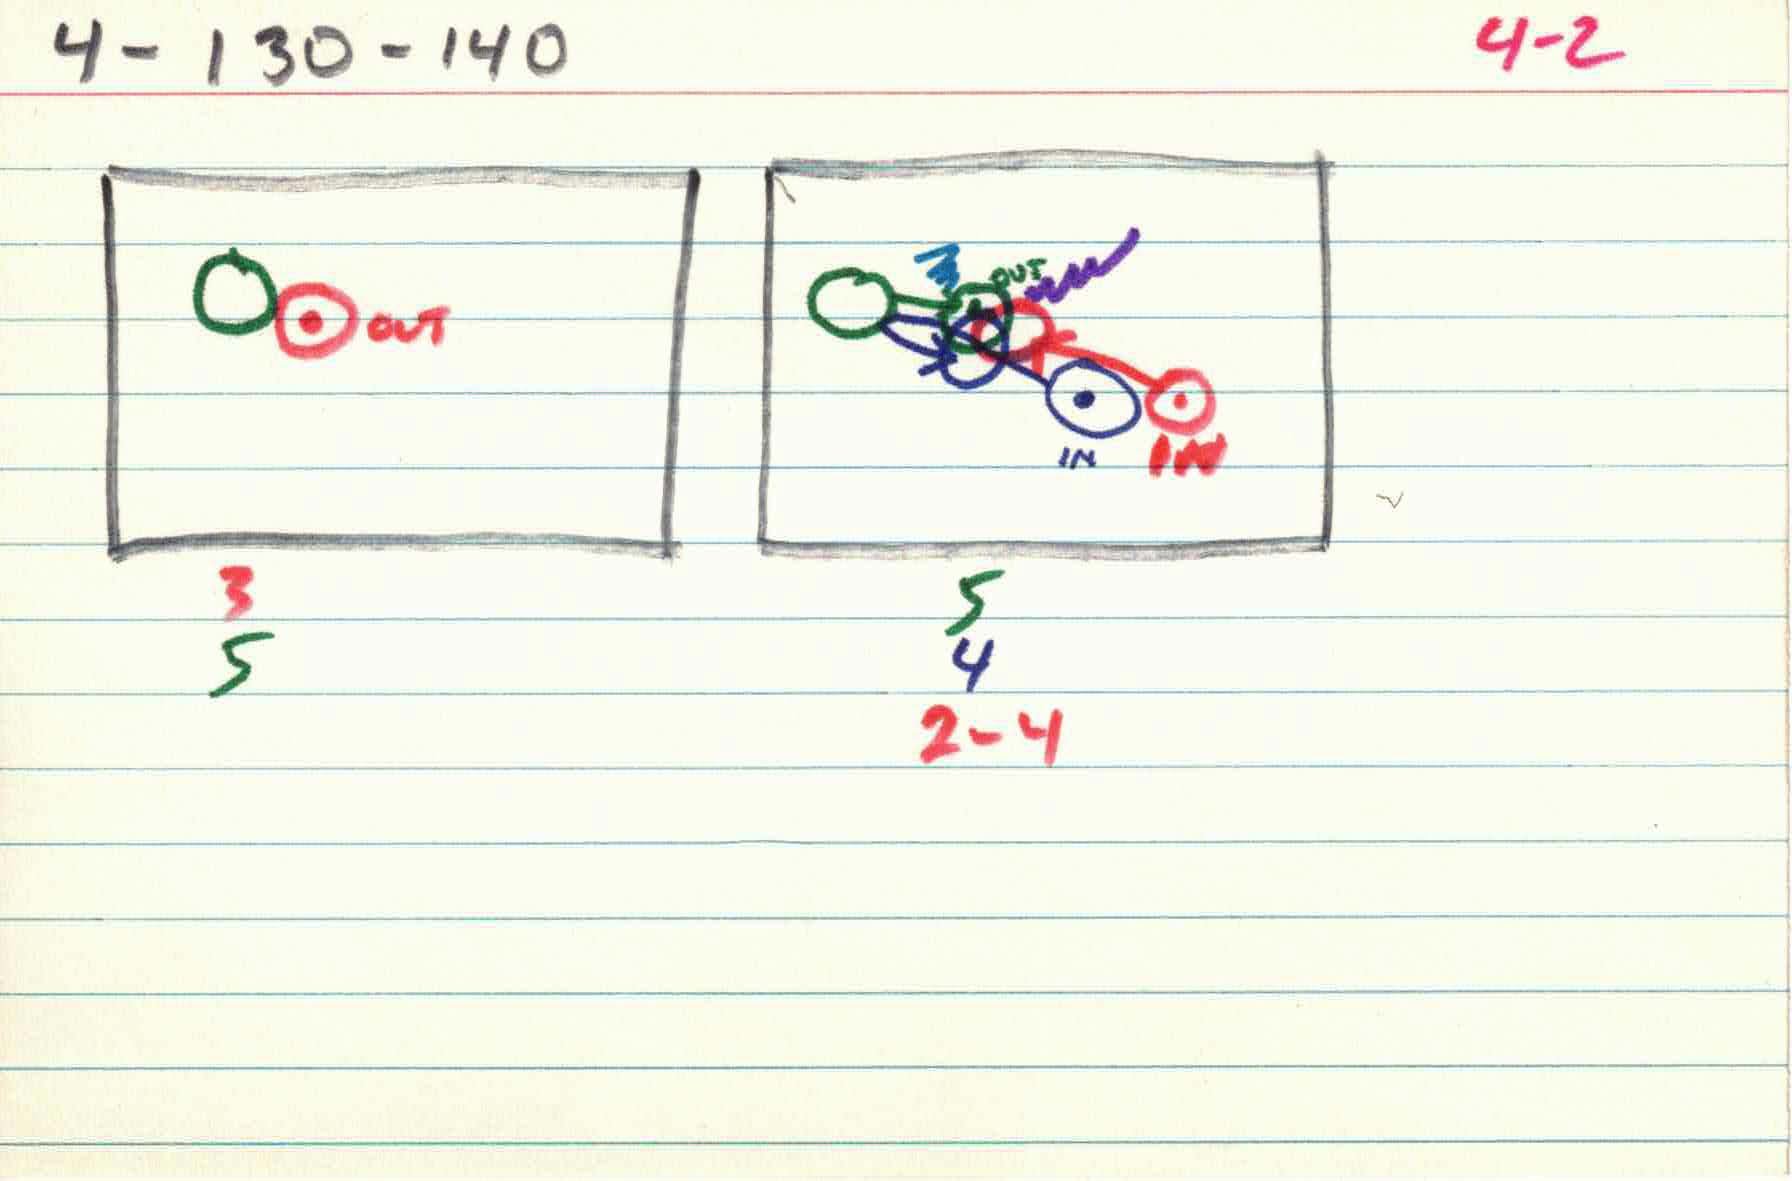 4-130-140
4-2
OUT
OUT
IN
IN
3
5
5
4
2-4